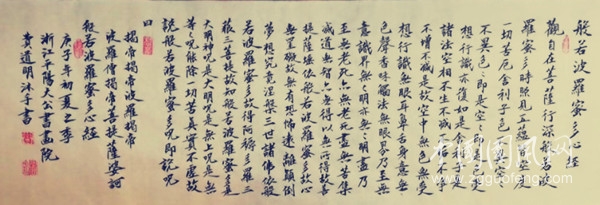 般若波羅蜜多心經
觀自在菩薩行深般若波
羅蜜多時照見五蘊皆空度
一切苦厄舍利子色不異空
不異色々即是空
想行識亦復如是
諸法空相不生不滅
不增不減是故空中無色無受
想行識無眼耳鼻舌身意無
色聲香味觸法無眼界乃至無
意識界無々明亦無々明盡乃
至無老死亦無老死盡無苦集
滅道無智亦無得以無所得故菩
提薩埵依般若波羅蜜多故心
無罣礙故無有恐怖遠離顛倒
夢想究竟涅槃三世諸佛依般
若波羅蜜多故得阿耨多羅三
藐三菩提故知般若波羅蜜多是
大明神呪是大明呪是無上呪是無
等々呪能除一切苦真實不虛故
說般若波羅蜜多呪即說呪
曰
揭帝揭帝波羅揭帝
波羅僧揭帝菩提薩婆訶
般若波羅蜜多心經
庚子年初夏之季
浙江平陽大公書畫院
黄道明沐手書
www.zgguofeng.com